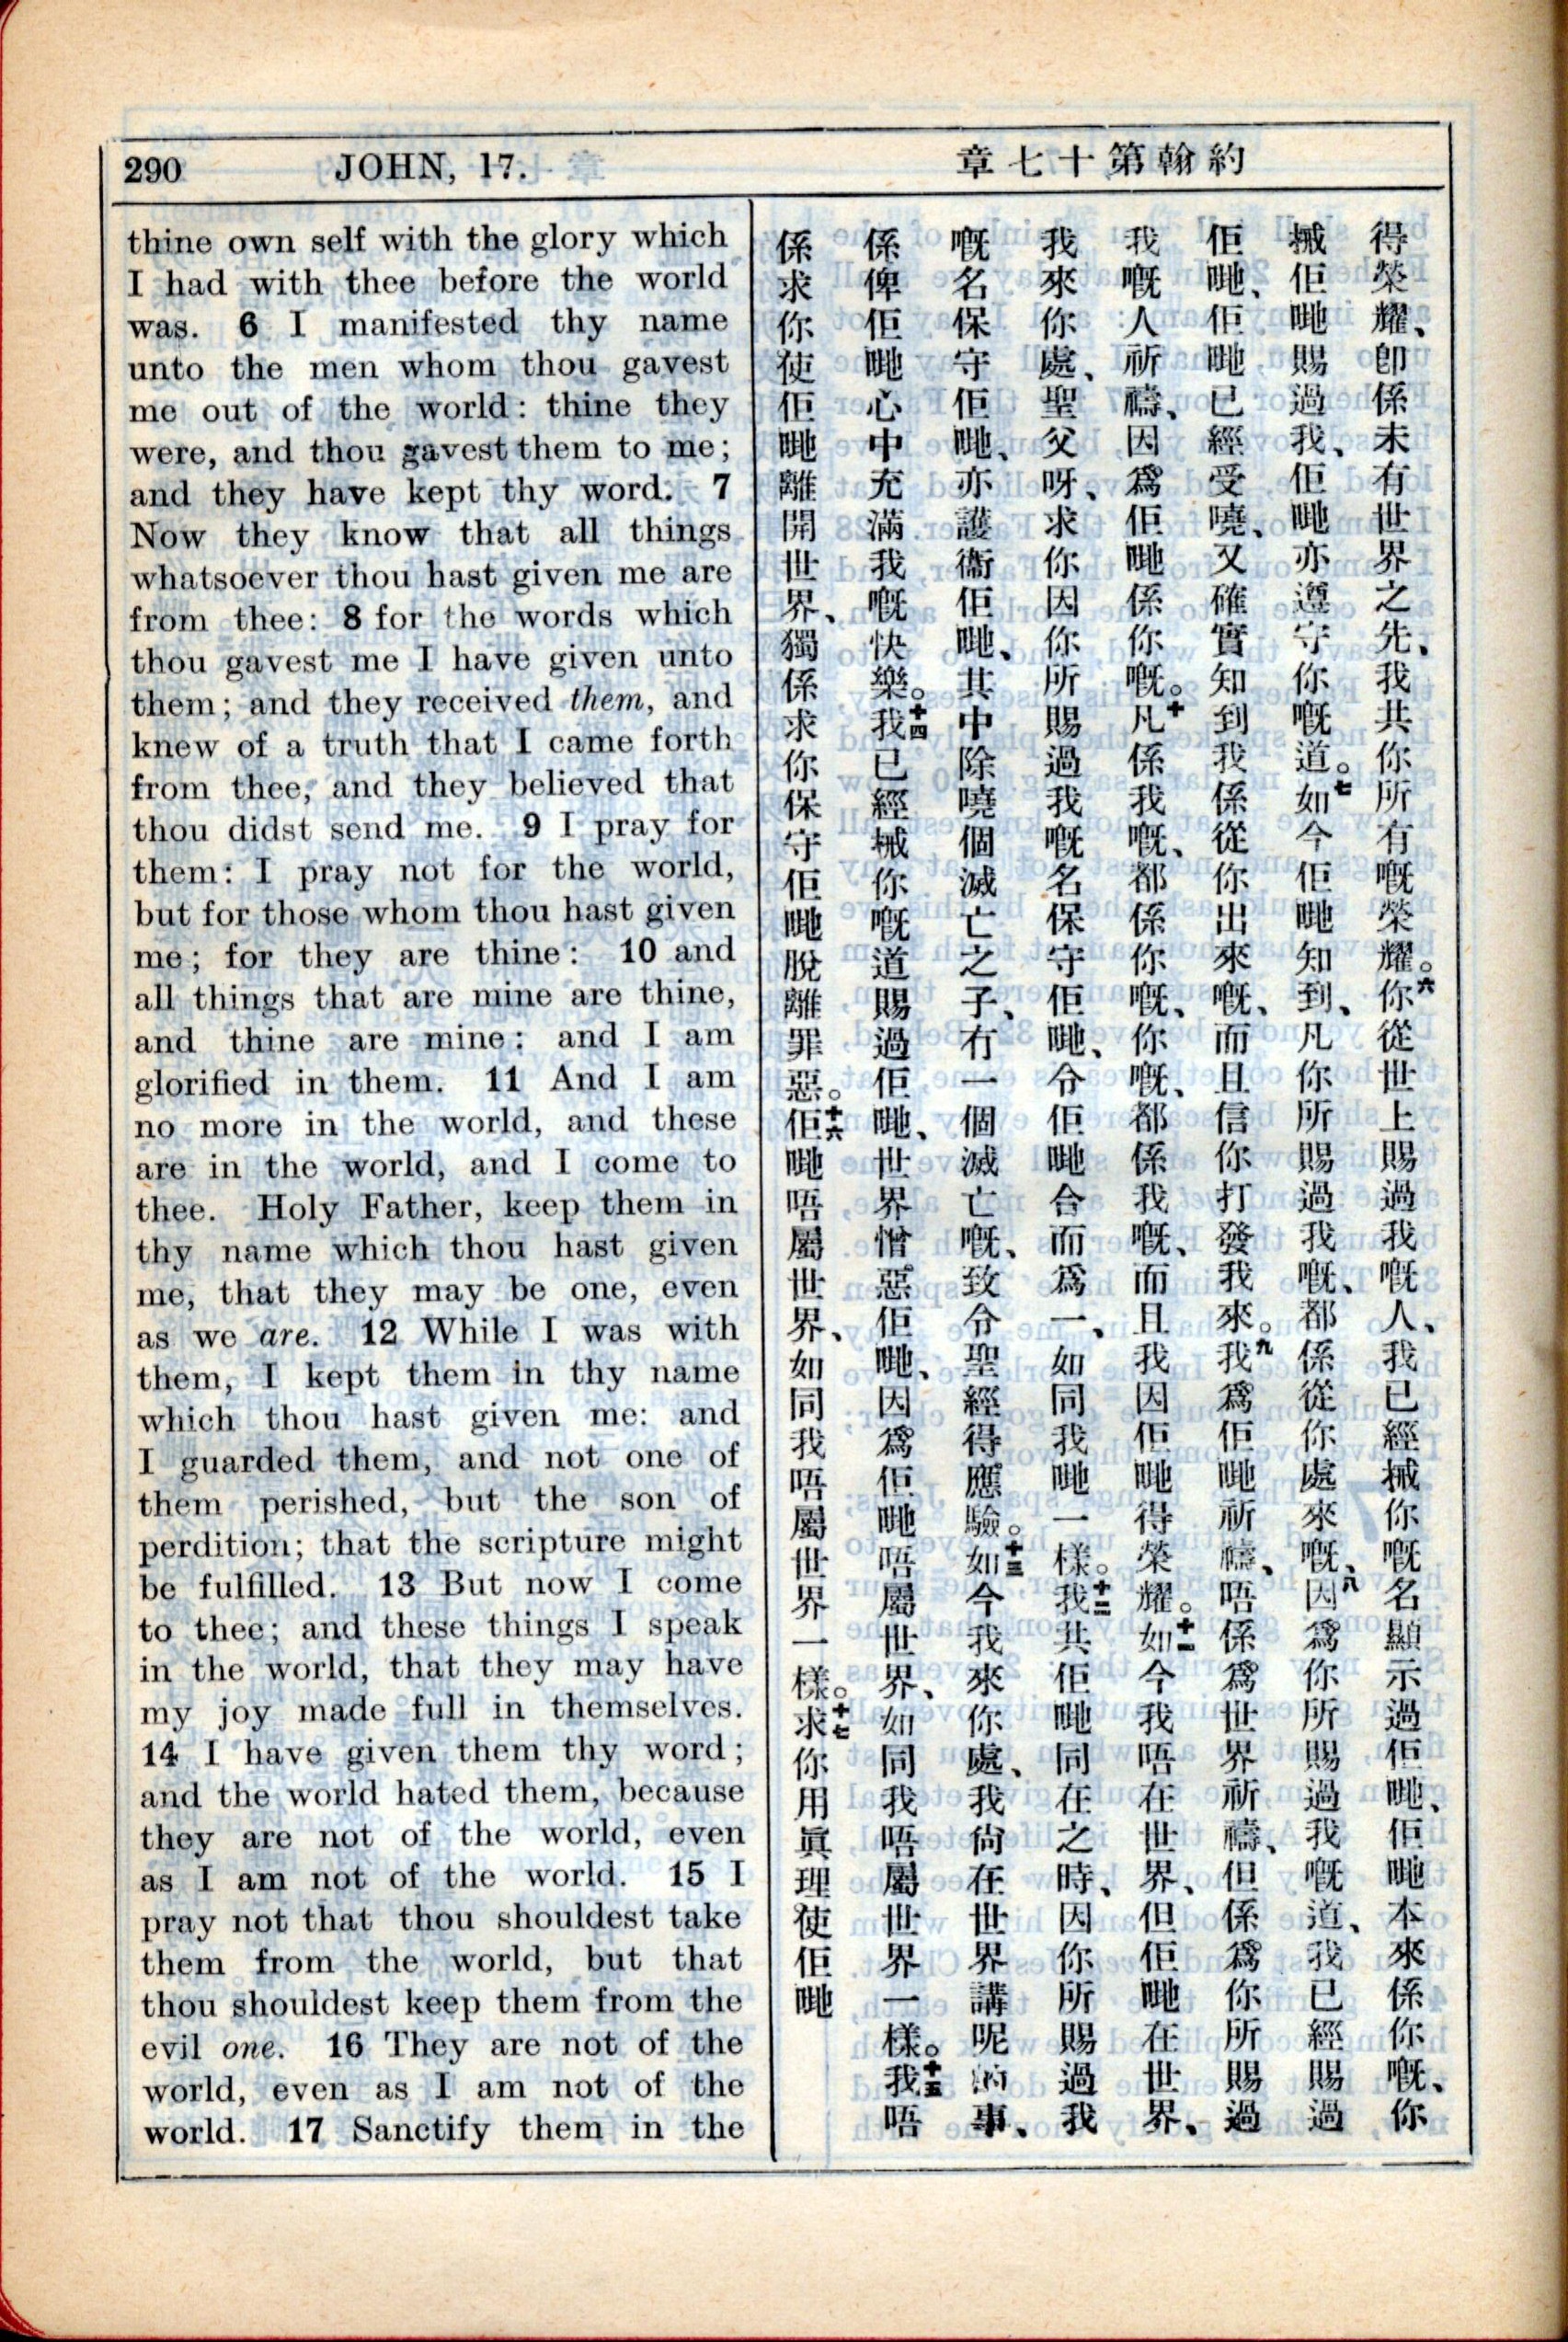 290 JOHN, 17.
章七十第翰約
thine own self with the glory which
I had with thee before the world
was. 6 I manifested thy name
unto the men whom thou gavest
me out of the world: thine they
were, and thou gavest them to me;
and they have kept thy word. 7
Now they know that all things
whatsoever thou hast given me are
from thee: 8 for the words which
thou gavest me I have given unto
them; and they received them, and
knew of a truth that I came forth
from thee, and they believed that
thou didst send me. 9 I pray for
them: I pray not for the world,
but for those whom thou hast given
me; for they are thine: 10 and
all things that are mine are thine,
and thine are mine: and I am
glorified in them. 11 And I am
no more in the world, and these
are in the world, and I come to
thee. Holy Father, keep them in
thy name which thou hast given
me, that they may be one, even
as we are. 12 While I was with
them, I kept them in thy name
which thou hast given me: and
I guarded them, and not one of
them perished, but the son of
perdition; that the scripture might
be fulfilled. 13 But now I come
to thee; and these things I speak
in the world, that they may have
my joy made full in themselves.
14 I have given them thy word;
and the world hated them, because
they are not of the world, even
as I am not of the world. 15 I
pray not that thou shouldest take
them from the world, but that
thou shouldest keep them from the
evil one. 16 They are not of the
world, even as I am not of the
world. 17 Sanctify them in the
得榮耀、卽係未有世界之先、我共你所有嘅榮耀。六你從世上賜過我嘅人、我已經搣你嘅名顯示過佢哋、佢哋本來係你嘅、你
搣佢哋賜過我、佢哋亦遵守你嘅道。七如今佢哋知到、凡你所賜過我嘅、都係從你處來嘅、八因爲你所賜過我嘅道、我已經賜過
佢哋、佢哋已經受嘵、又確實知到我係從你出來嘅、而且信你打發我來。九我爲佢哋祈禱、唔係爲世界祈禱、但係爲你所賜過
我嘅人祈禱、因爲佢哋係你嘅。十凡係我嘅、都係你嘅、你嘅、都係我嘅、而且我因佢哋得榮耀。十一如今我唔在世界、但佢哋在世界、
我來你處、聖父呀、求你因你所賜過我嘅名保守佢哋、令佢哋合而爲一、如同我哋一樣。十二我共佢哋同在之時、因你所賜過我
嘅名保守佢哋、亦護衞佢哋、其中除嘵個滅亡之子、冇一個滅亡嘅、致令聖經得應驗。十三如今我來你處、我尙在世界講呢的事、
係俾佢哋心中充滿我嘅快樂。十四我已經搣你嘅道賜過佢哋、世界憎惡佢哋、因爲佢哋唔屬世界、如同我唔屬世界一樣。十五我唔
係求你使佢哋離開世界、獨係求你保守佢哋脫離罪惡。十六佢哋唔屬世界、如同我唔屬世界一樣。十七求你用眞理使佢哋